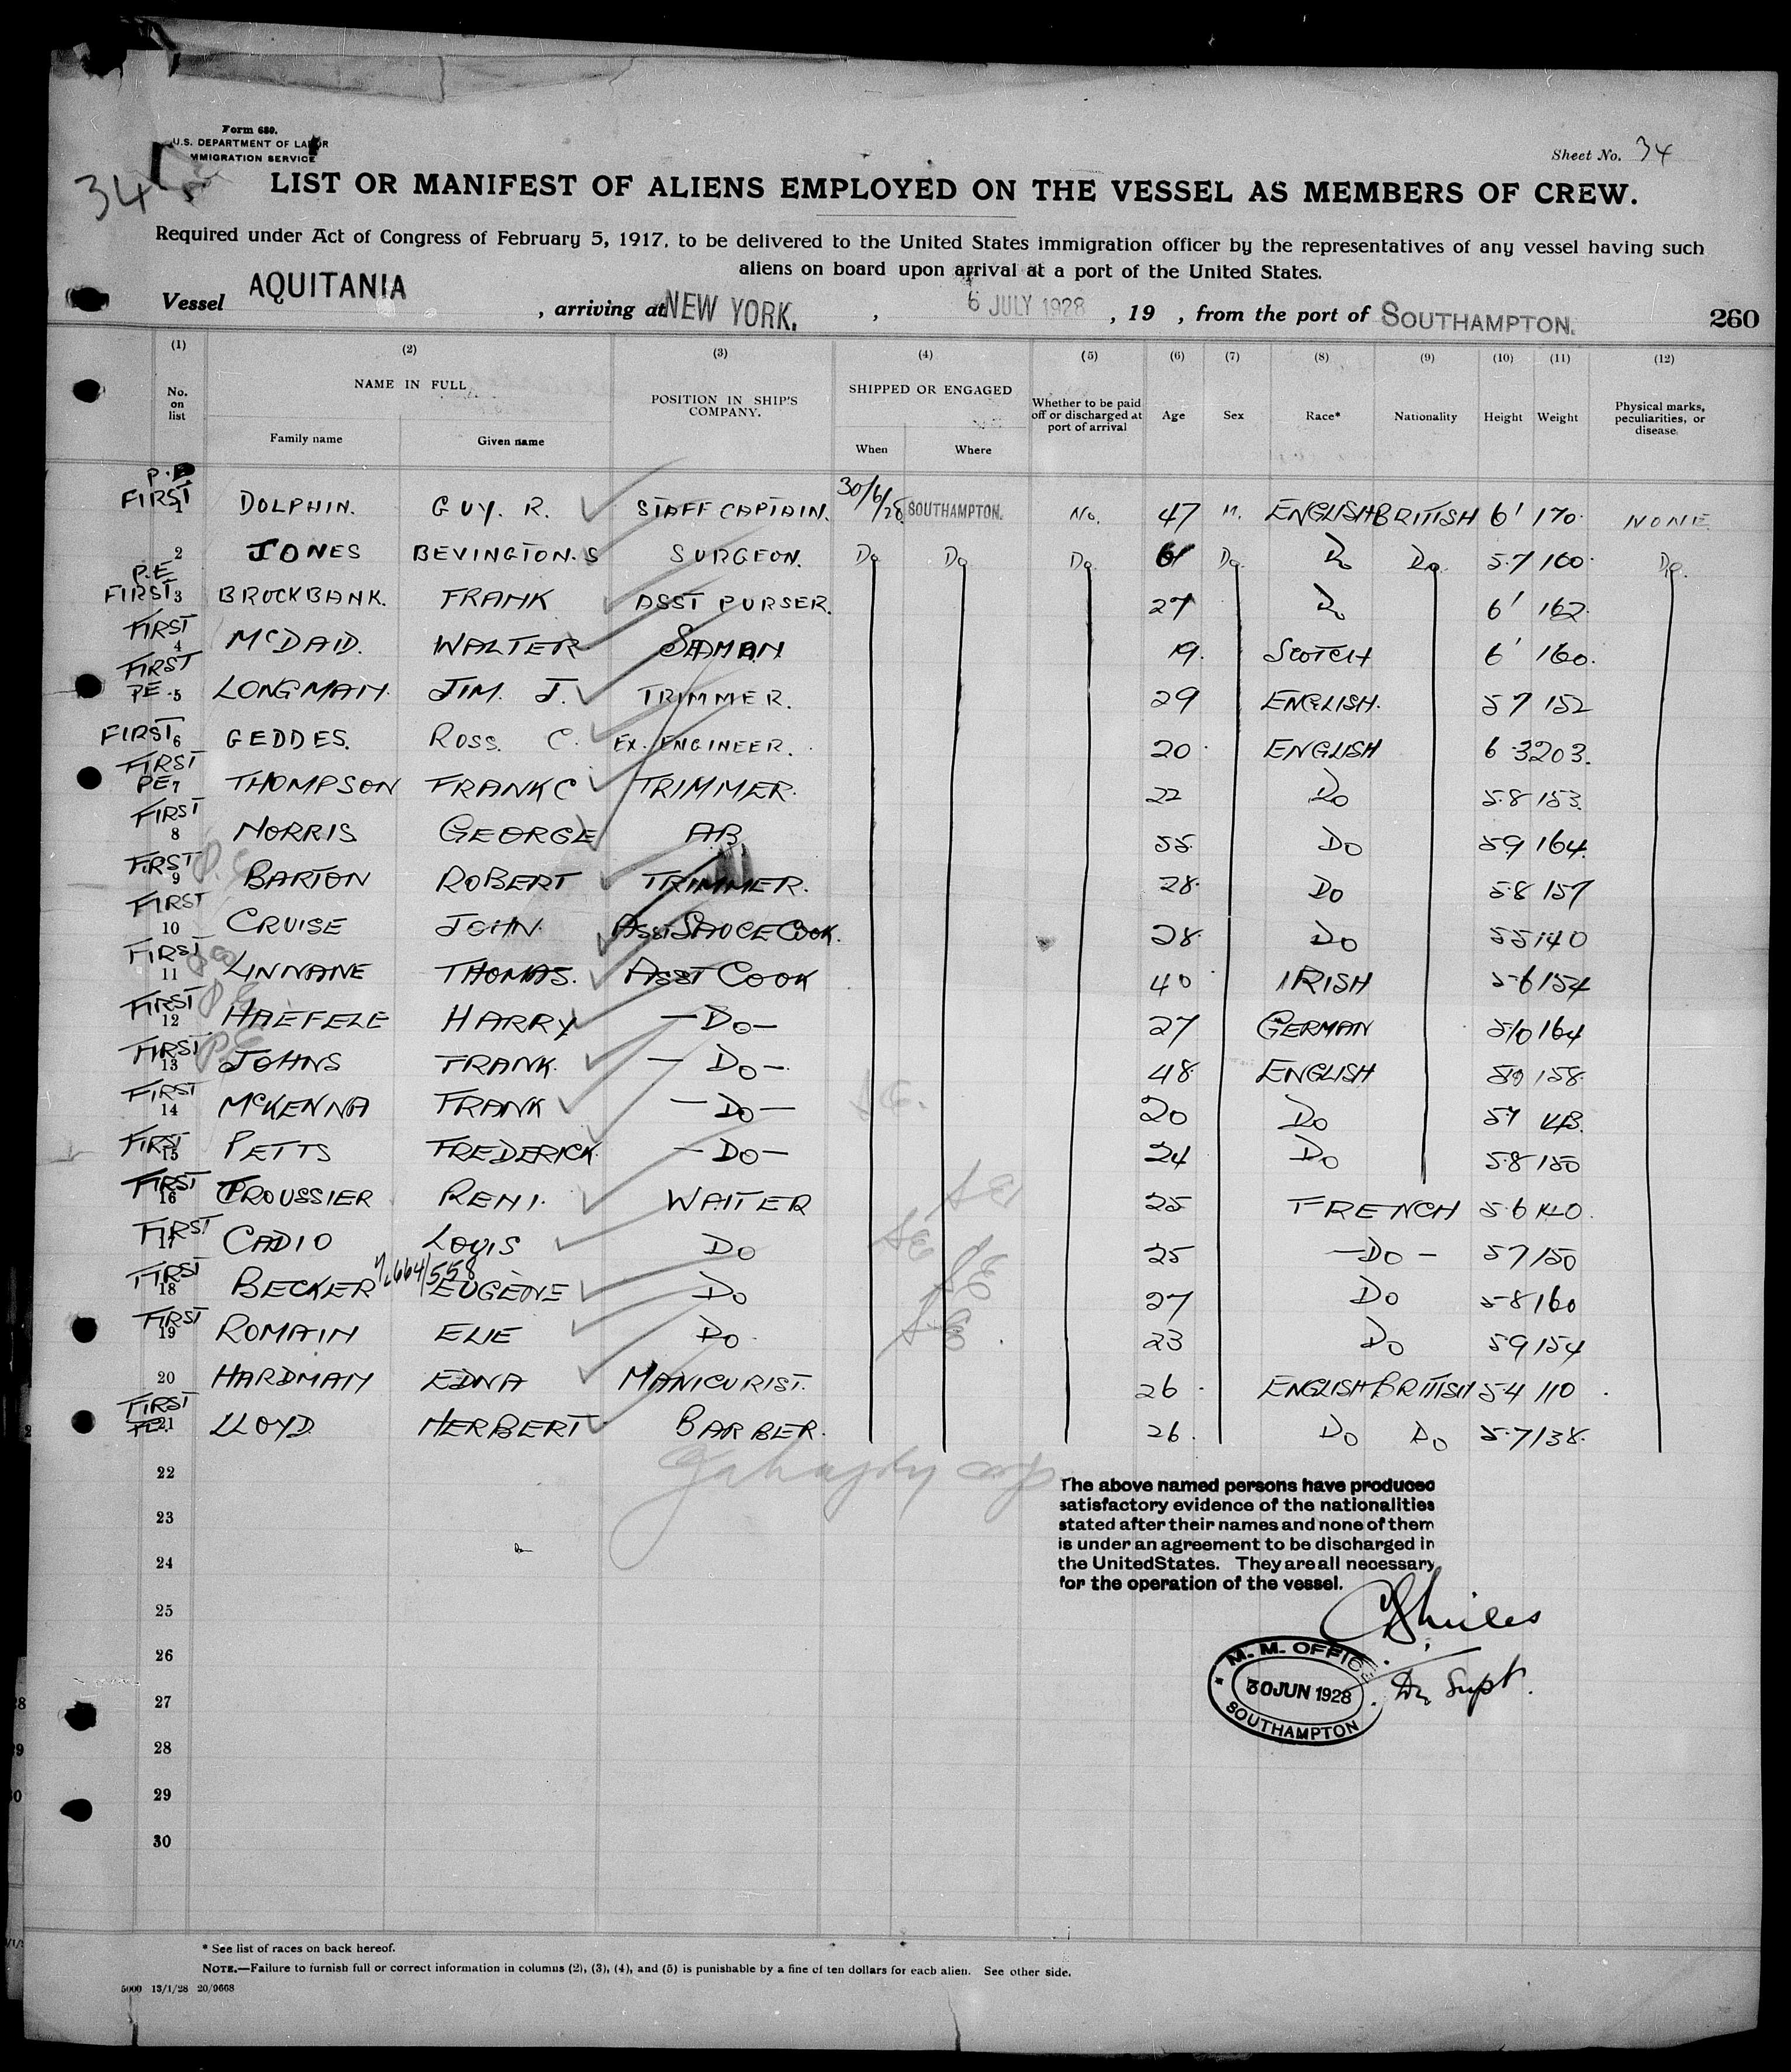 Form 680.
U.S. DEPARTMENT OF LABOR
IMMIGRATION SERVICE
Sheet No. 34
34
LIST OR MANIFEST OF ALIENS EMPLOYED ON THE VESSEL AS MEMBERS OF CREW.
Required under Act of Congress of February 5, 1917, to be delivered to the United States immigration officer by the representatives of any vessel having such
aliens on board upon arrival at a port of the United States.
Vessel AQUITANIA , arriving at NEW YORK. , 6 JULY 1928 , 19 , from the port of SOUTHAMPTON. 260
(1) (2) (3) (4) (5) (6) (7) (8) (9) (10) (11) (12)
No. on list NAME IN FULL POSITION IN SHIP'S COMPANY. SHIPPED OR ENGAGED Whether to be paid off or discharged at port of arrival Age Sex Race* Nationality Height Weight Physical marks, peculiarities, or disease.
Family name Given name When Where
P.E FIRST 1 DOLPHIN. GUY. R. STAFF CAPTAIN. 30/6/28 SOUTHAMPTON. No. 47 M. ENGLISH BRITISH 6' 170. NONE
2 JONES BEVINGTON. S SURGEON. Do Do Do 61 Do Do Do 5.7 160. Do.
P.E FIRST 3 BROCKBANK. FRANK ASST PURSER. 27 Do 6' 162.
FIRST 4 McDAID. WALTER SEAMAN 19. SCOTCH 6' 160.
FIRST PE 5 LONGMAN. JIM. J. TRIMMER. 29 ENGLISH. 5 7 152
FIRST 6 GEDDES. ROSS. C. EX. ENGINEER. 20 ENGLISH 6 3 203.
FIRST PE 7 THOMPSON FRANK C TRIMMER. 22 Do 5.8 153.
FIRST 8 NORRIS GEORGE AB. 55. Do 5 9 164.
FIRST 9 BARTON ROBERT TRIMMER. 28. Do 5.8 157
FIRST 10 CRUISE JOHN. ASST SAUCE COOK. 28. Do 5 5 140
FIRST 11 LINNANE THOMAS. ASST COOK 40 IRISH 5-6 154
FIRST 12 HAEFELE HARRY —Do— 27 GERMAN 5/10 164
FIRST 13 JOHNS FRANK. —Do—. 48 ENGLISH 5 10 158.
FIRST 14 McKENNA FRANK —Do— 20 Do 5 7
FIRST 15 PETTS FREDERICK. —Do— 24 Do 5.8 150
FIRST 16 TROUSSIER RENI. WAITER 25 FRENCH 5.6 140.
FIRST 17 CADIO LOUIS Do 25 —Do— 5 7 150
FIRST 18 BECKER EUGÈNE Do 27 Do 5-8 160
FIRST 19 ROMAIN ELIE Do 23 Do 5 9 154
20 HARDMAN EDNA MANICURIST. 26 ENGLISH BRITISH 5.4 110
FIRST PE 21 LLOYD HERBERT BARBER. 26 Do Do 5.7 138.
22
23
24
25
26
27
28
29
30
The above named persons have produced
satisfactory evidence of the nationalities
stated after their names and none of them
is under an agreement to be discharged in
the United States. They are all necessary
for the operation of the vessel.
M. M. OFFICE
30 JUN 1928
SOUTHAMPTON
Supt.
* See list of races on back hereof.
NOTE.—Failure to furnish full or correct information in columns (2), (3), (4), and (5) is punishable by a fine of ten dollars for each alien. See other side.
5000 13/1/28 20/9668